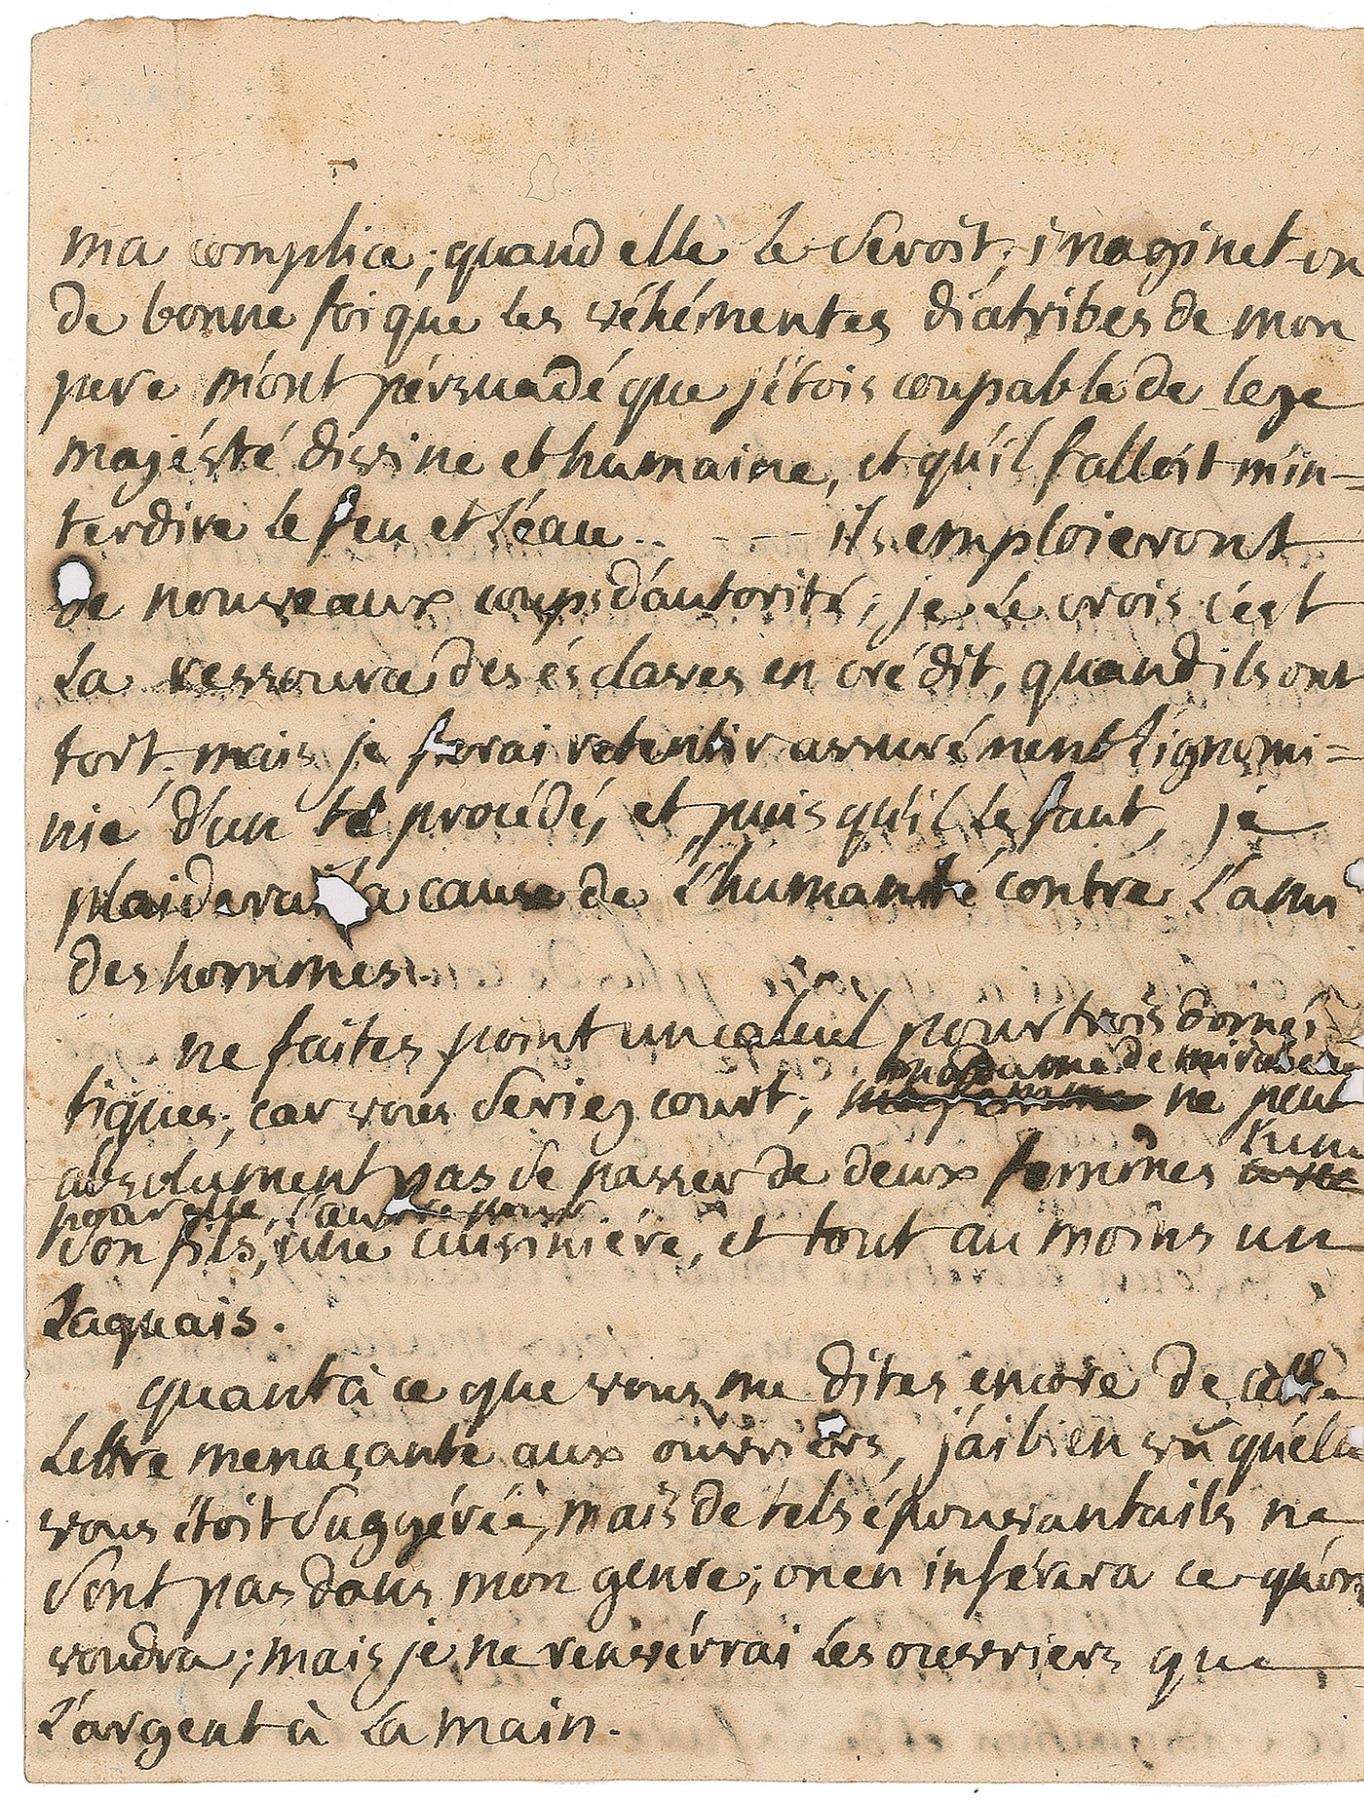 ma complice; quand elle le seroit; imaginet-on
de bonne foi que les véhémentes diatribes de mon
pere m'ont pérsuadé que j'étois coupable de leze
majésté divine et humaine, et qu'il falloit m'in=
terdire le feu et l'eau.. - - - ils emploieront
de nouveaux coups d'autorité; je le crois c'est
la ressource des ésclaves en crédit, quand ils ont
tort; mais je ferai retentir assurément l'ignomi=
nie d'un tel procédé, et puis qu'il le faut, je
plaiderai la cause de l'humanité contre l'ami
des hommes.
ne faites point un calcul pour trois domés
madame de mirabeau
tiques; car vous seriez court; ne peut
l'une
absolument pas se passer de deux femmes
pour elle, l'autre pour
son fils, une cuisiniére, et tout au moins un
laquais.
quant à ce que vous me dites encore de cette
lettre menaçante aux ouvriers, j'ai bien vu qu'éle
vous étoit suggérée, mais de tels épouvantails ne
sont pas dans mon genre; on en inférera ce qu'on
voudra; mais je ne renvérrai les ouvriers que
l'argent à la main.